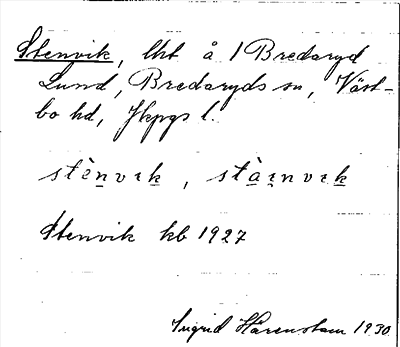 Stenvik, lht å 1 Bredaryd
Lund, Bredaryds sn, Väst-
bo hd, Jkpgs l.
stènvɪk, stàɪnvɪk
Stenvik kb 1927
Ingrid Hårenstam 1930.